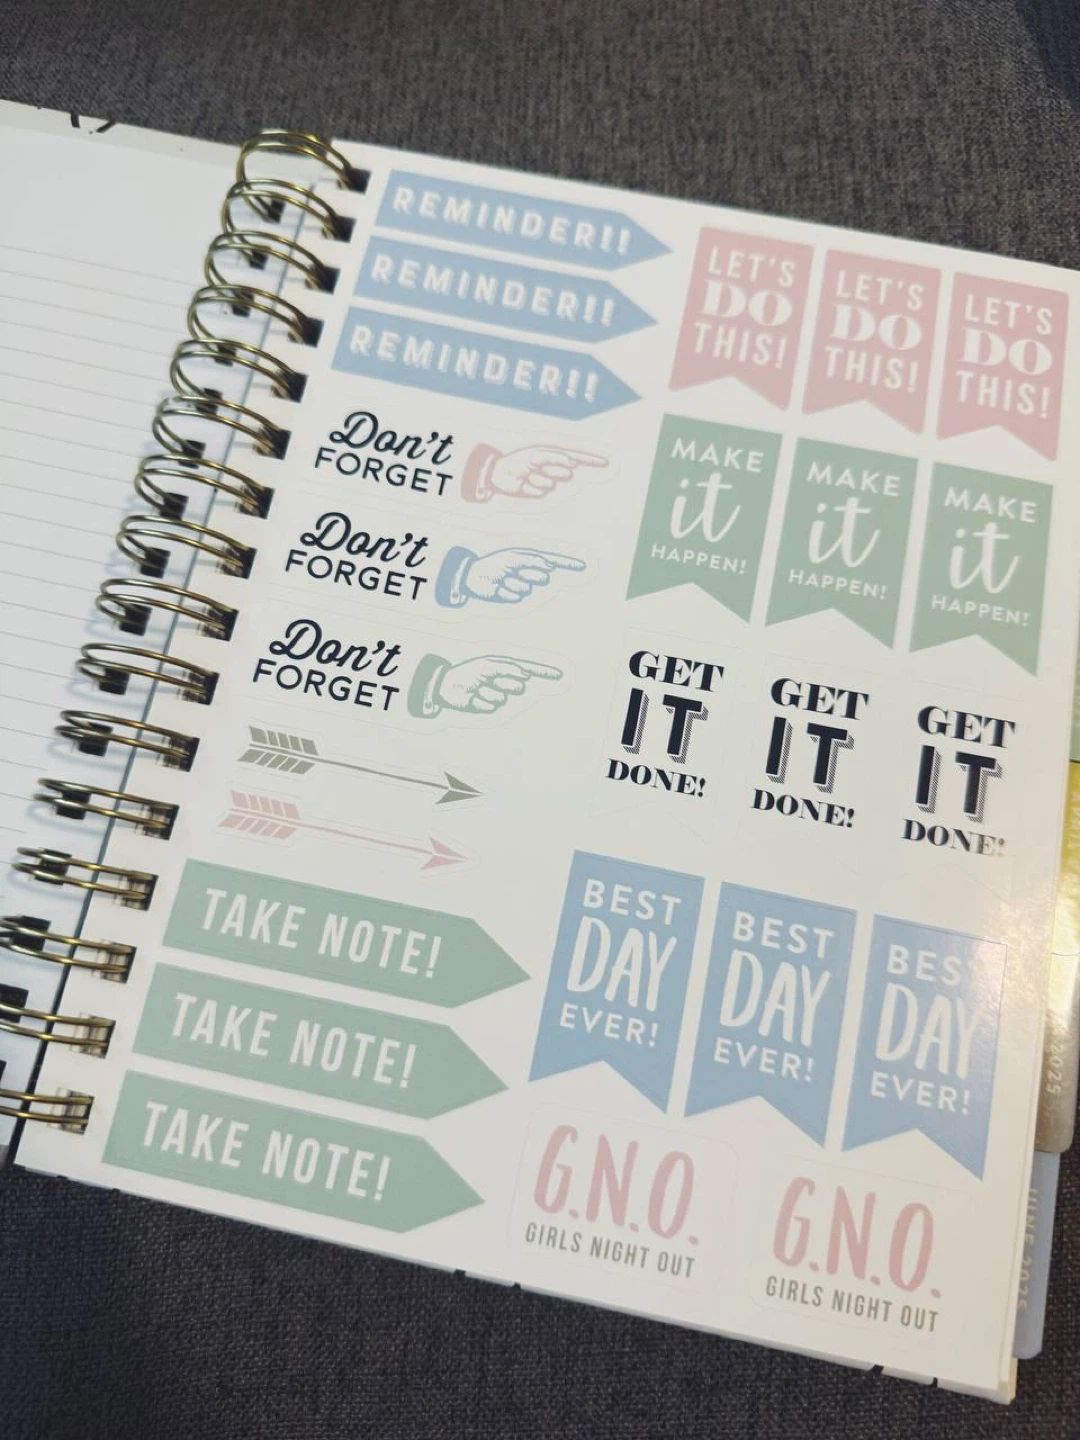 REMINDER!!
REMINDER!!
REMINDER!!
Don't
FORGET
Don't
FORGET
Don't
FORGET
TAKE NOTE!
TAKE NOTE!
TAKE NOTE!
LET'S
DO
THIS!
LET'S
DO
THIS!
LET'S
DO
THIS!
MAKE
it
HAPPEN!
MAKE
it
HAPPEN!
MAKE
it
HAPPEN!
GET
IT
DONE!
GET
IT
DONE!
GET
IT
DONE!
BEST
DAY
EVER!
BEST
DAY
EVER!
BEST
DAY
EVER!
G.N.O.
GIRLS NIGHT OUT
G.N.O.
GIRLS NIGHT OUT
2025
JUNE 2025